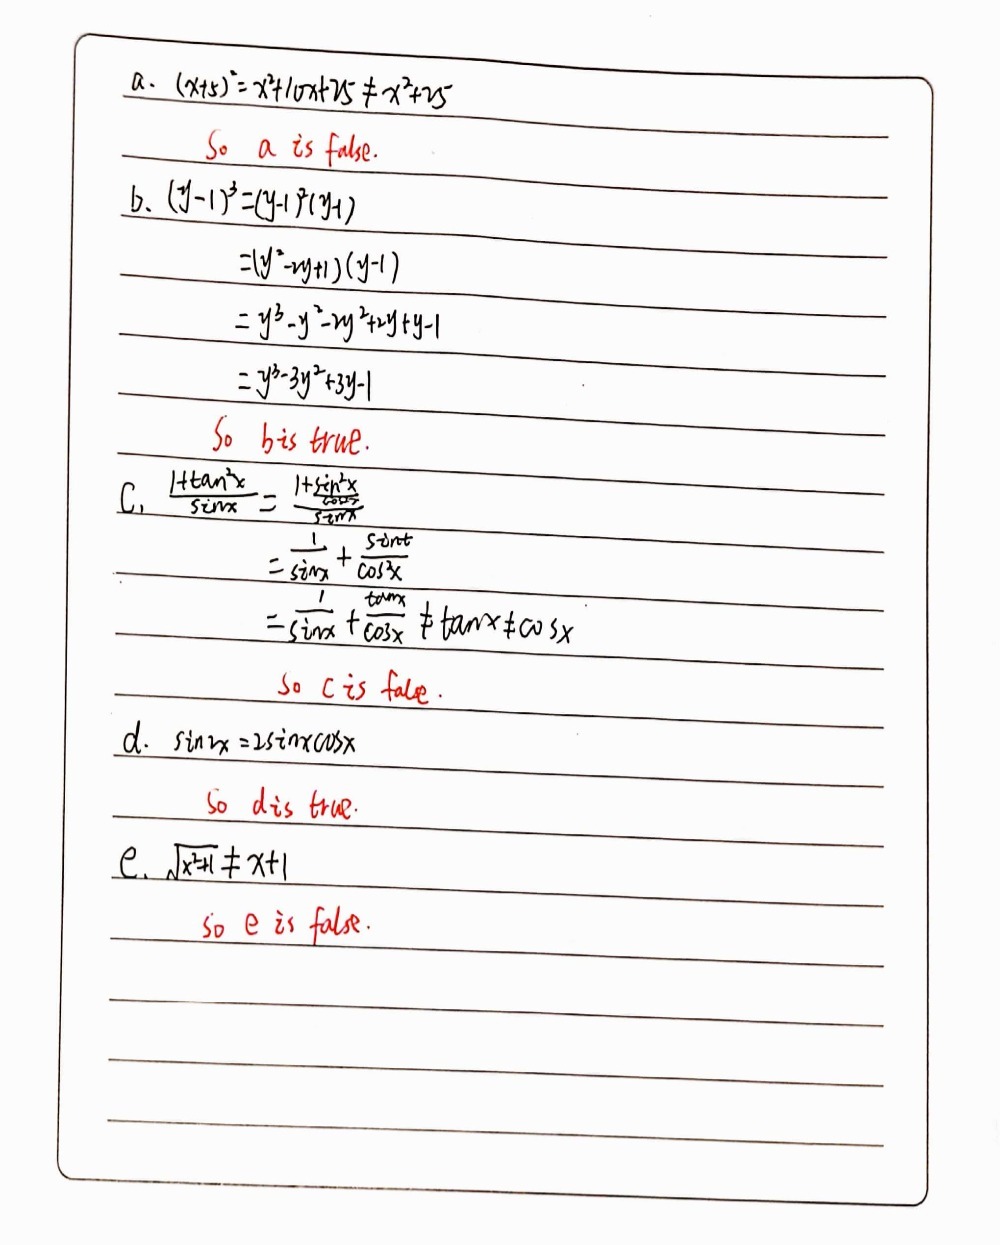 a. (x+5)²=x²+10x+25≠x²+25
So a is false.
b. (y-1)³=(y-1)²(y-1)
=(y²-2y+1)(y-1)
=y³-y²-2y²+2y+y-1
=y³-3y²+3y-1
So b is true.
C. (1+tan²x)/(sinx) = (1+sin²x/cos²x)/(sinx)
= 1/sinx + sinx/cos²x
= 1/sinx + tanx/cosx ≠ tanx≠cosx
So C is false.
d. sin2x=2sinxcosx
So d is true.
e. √(x²+1) ≠ x+1
So e is false.